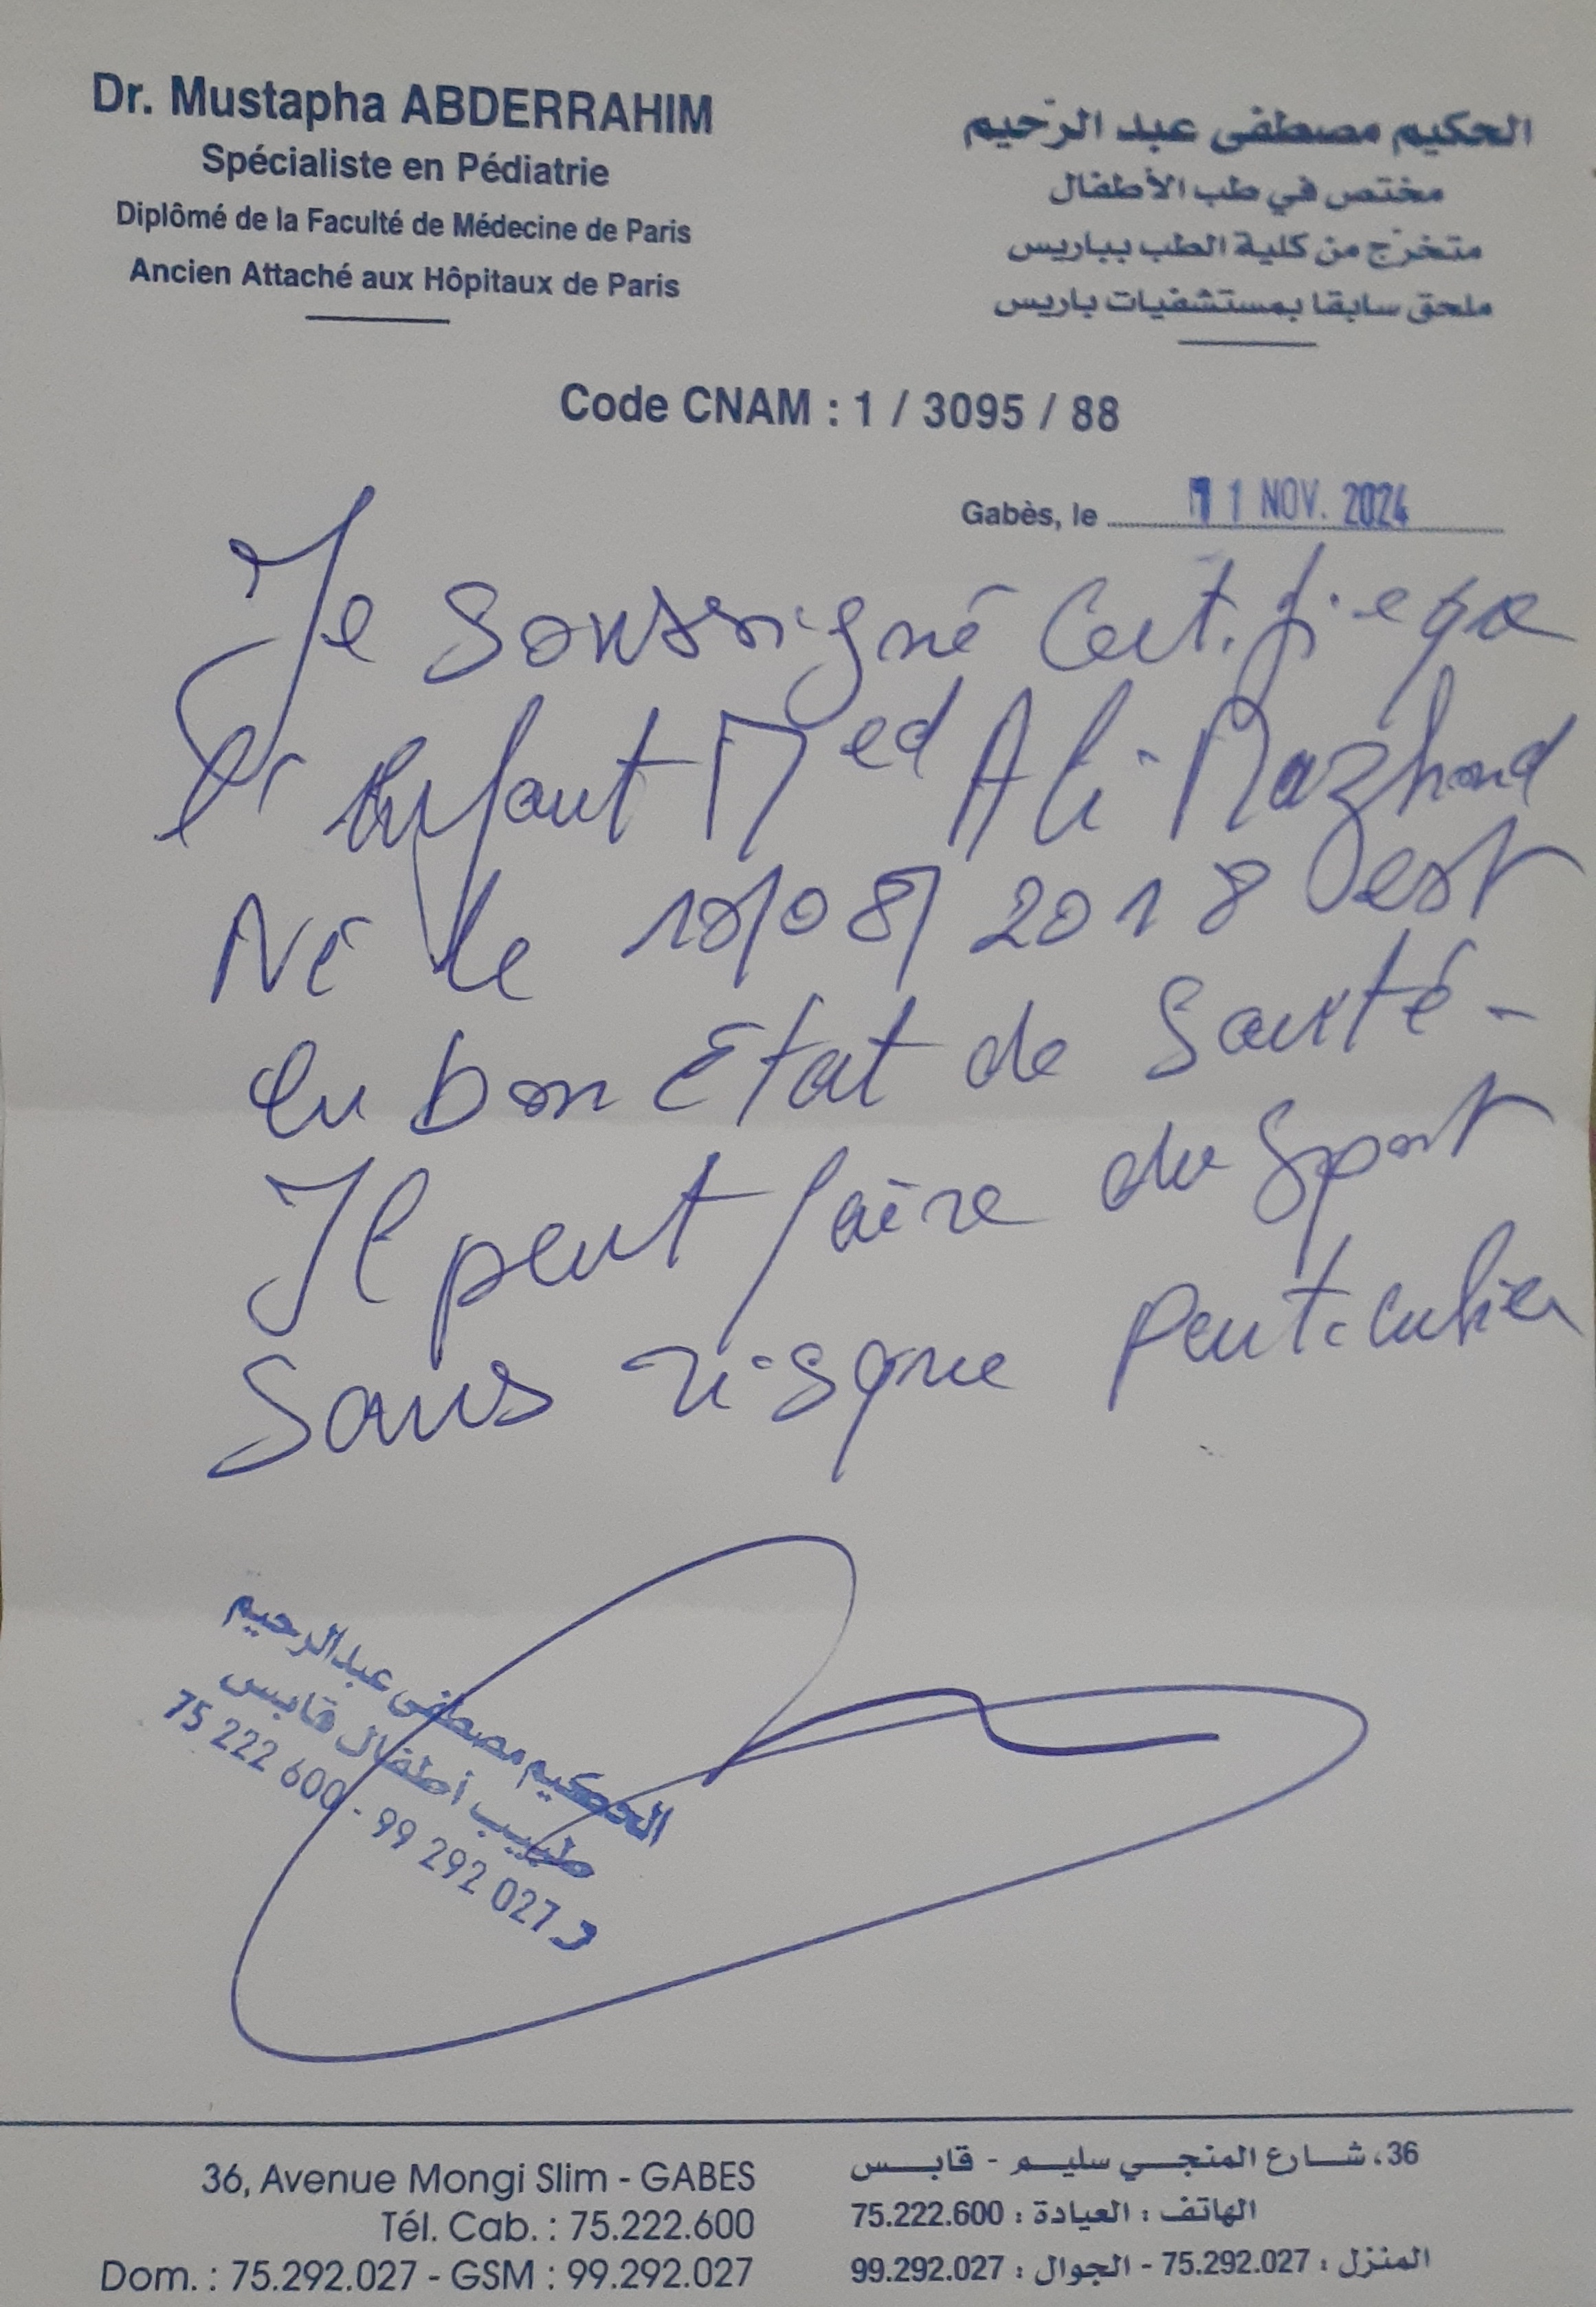 Dr. Mustapha ABDERRAHIM
Spécialiste en Pédiatrie
Diplômé de la Faculté de Médecine de Paris
Ancien Attaché aux Hôpitaux de Paris
الحكيم مصطفى عبد الرحيم
مختص في طب الأطفال
متخرّج من كلية الطب بباريس
ملحق سابقا بمستشفيات باريس
Code CNAM : 1 / 3095 / 88
Gabès, le 11 NOV. 2024
Je soussigné Certifie que
enfant Med Ali
Né le /08/ 2018 est
en bon Etat de Santé -
Il peut faire du sport
Sans risque particulier
الحكيم مصطفى عبد الرحيم
طبيب أطفال قابس
75 222 600 - 99 292 027
36, Avenue Mongi Slim - GABES
Tél. Cab. : 75.222.600
Dom. : 75.292.027 - GSM : 99.292.027
36، شارع المنجي سليم - قابس
الهاتف : العيادة : 75.222.600
المنزل : 75.292.027 - الجوال : 99.292.027